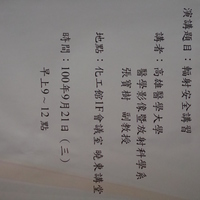 演講題目：輻射安全講習
講者：高雄醫學大學
醫學影像暨放射科學系
張寶樹 副教授
地點：化工館1F會議室 曉東講堂
時間：100年9月21日（三）
早上9～12點